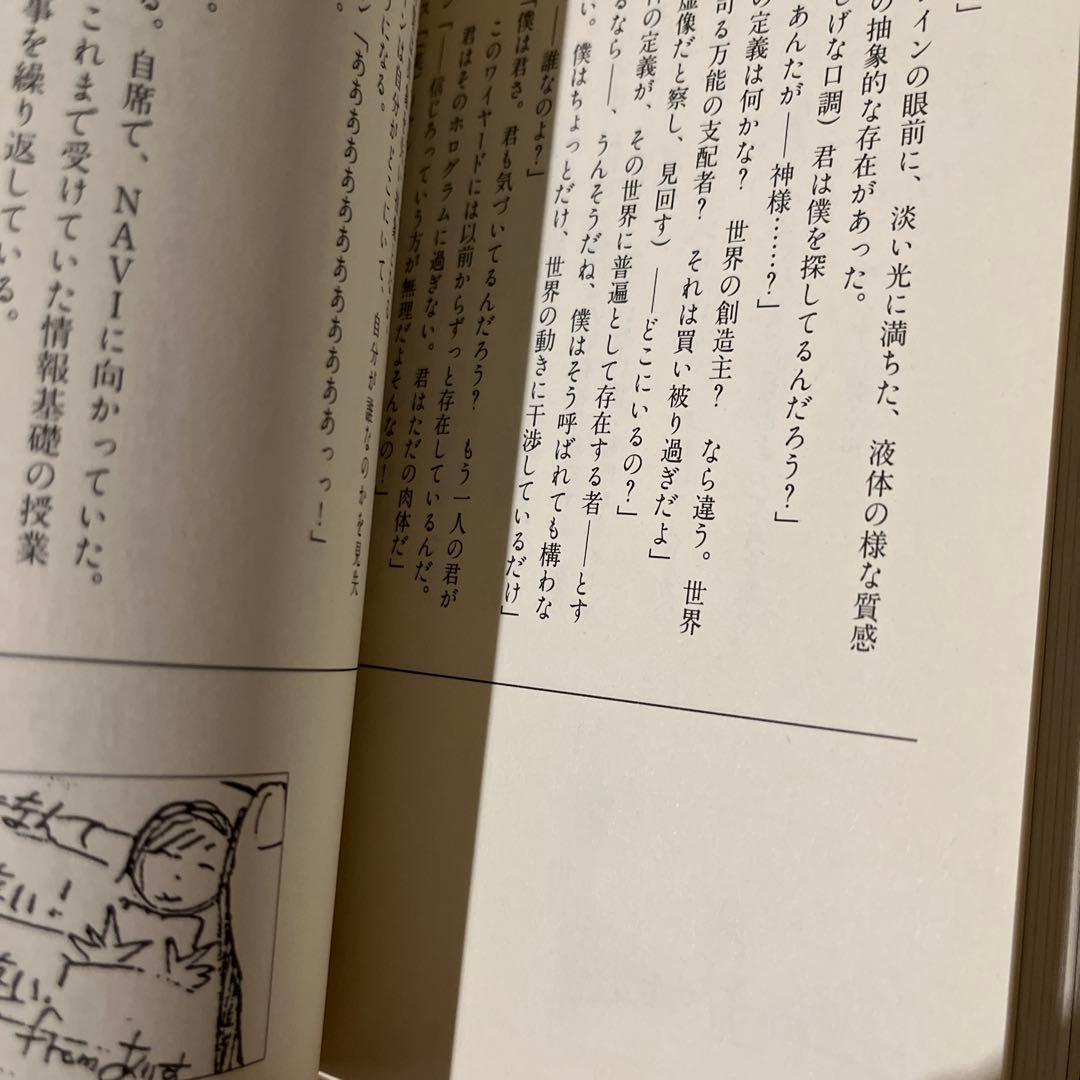 」
インの眼前に、淡い光に満ちた、液体の様な質感
の抽象的な存在があった。
しげな口調）君は僕を探してるんだろう？」
あんたが――神様……？」
の定義は何かな？　世界の創造主？　なら違う。世界
司る万能の支配者？　それは買い被り過ぎだよ」
虚像だと察し、見回す）――どこにいるの？」
の定義が、その世界に普遍として存在する者――とす
るなら――、うんそうだね、僕はそう呼ばれても構わな
い。僕はちょっとだけ、世界の動きに干渉しているだけ」
――誰なのよ？」
「僕は君さ。君も気づいてるんだろう？　もう一人の君が
このワイヤードには以前からずっと存在しているんだ。
君はそのホログラムに過ぎない。君はただの肉体だ」
「――信じろっていう方が無理だよそんなの！」
ンは自分がどこにいて、自分が誰なのかを見失
うになる。
「ああああああああああああっっ！」
。
る。自席で、NAVIに向かっていた。
これまで受けていた情報基礎の授業
事を繰り返している。
なんて
！
from ありす